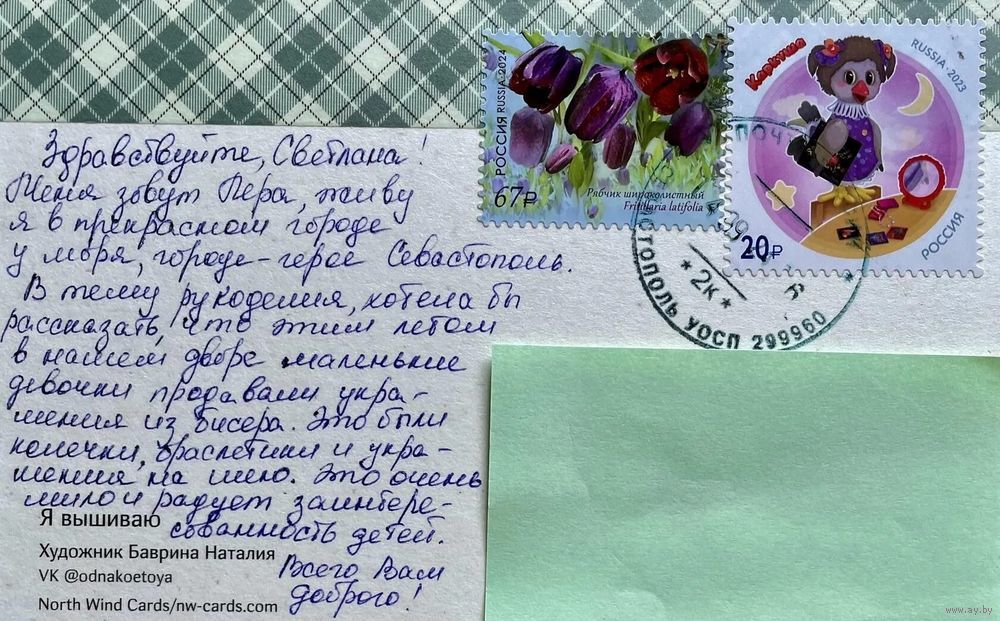 Здравствуйте, Светлана!
Меня зовут Вера, живу
я в прекрасном городе
у моря, городе-герое Севастополь.
В тему рукоделия, хотела бы
рассказать, что этим летом
в нашем дворе маленькие
девочки продавали укра-
шения из бисера. Это были
колечки, браслетики и укра-
шения на шею. Это очень
мило и радует заинтере-
сованность детей.
Всего Вам
доброго!
Я вышиваю
Художник Баврина Наталия
VK @odnakoetoya
North Wind Cards/nw-cards.com
РОССИЯ RUSSIA 2024
67₽
Рябчик широколистный
Fritillaria latifolia
Каркуша
RUSSIA·2023
20₽
РОССИЯ
СТОПОЛЬ УОСП 299960
*2к*
www.ay.by